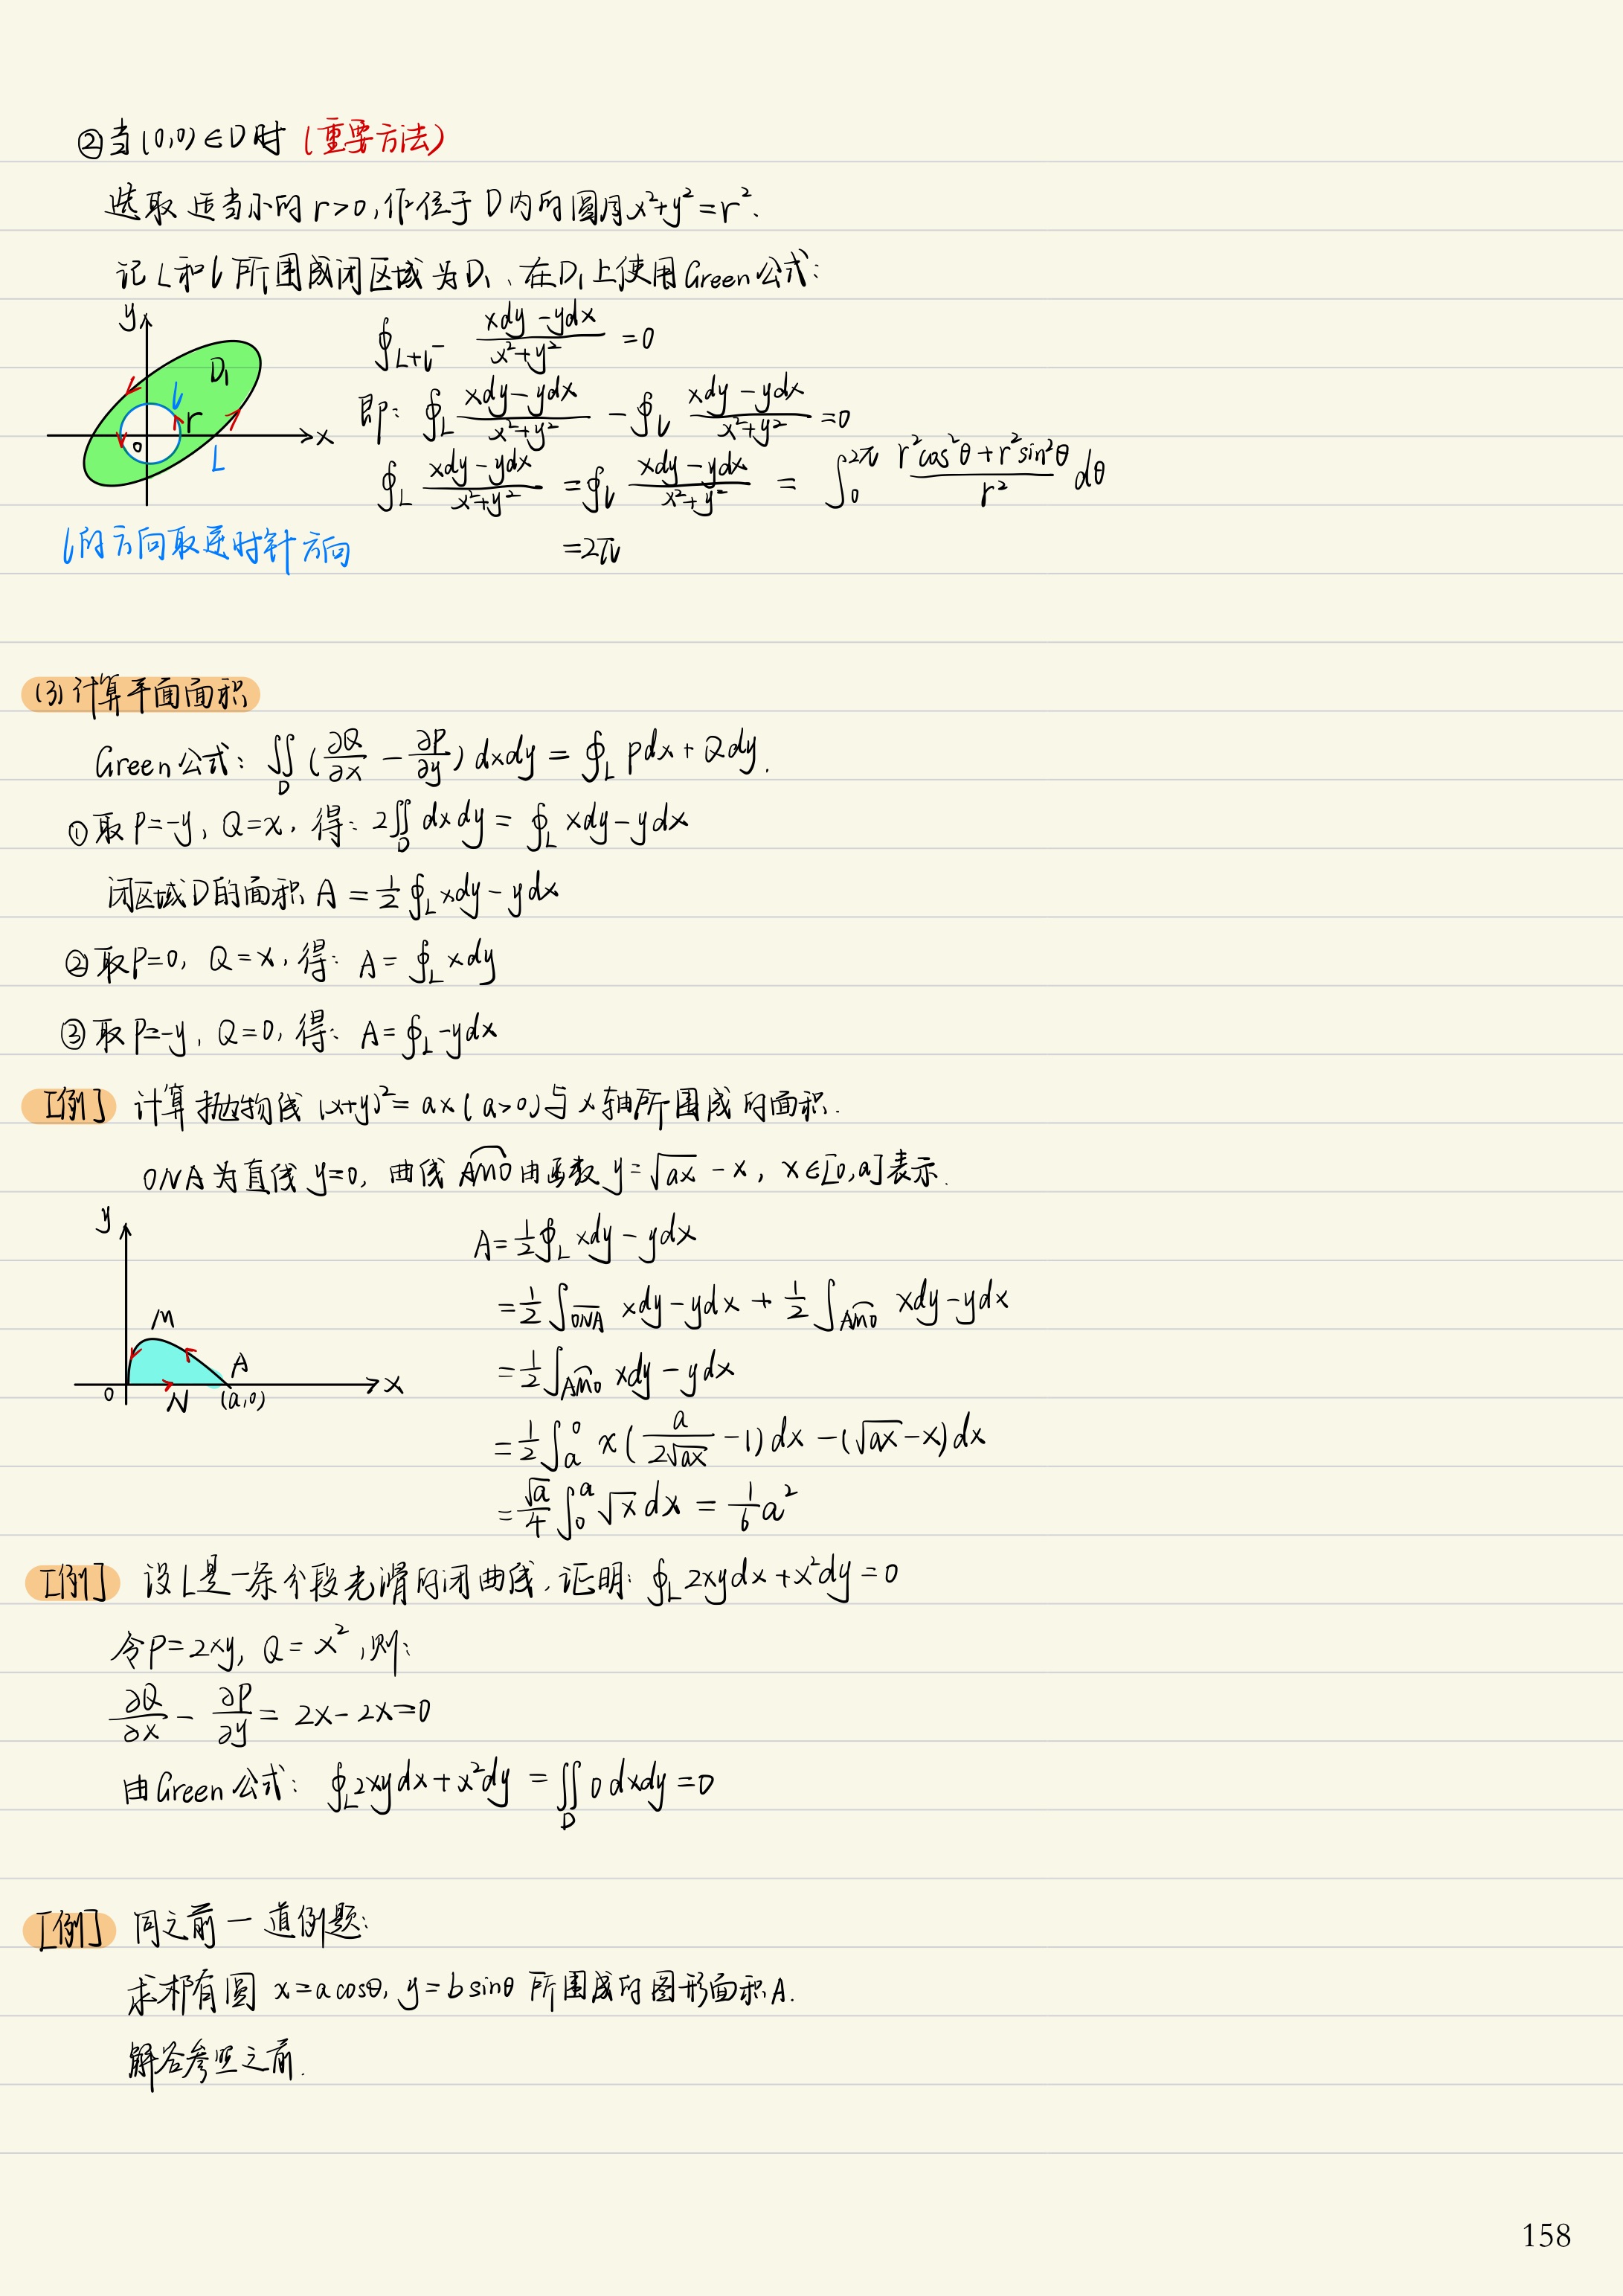 ②当(0,0)∈D时 (重要方法)
选取适当小的r>0,作位于D内的圆周x²+y²=r².
记L和l所围成闭区域为D₁,在D₁上使用Green公式:
y
D₁
l
r
0
x
L
l的方向取逆时针方向
∮_{L+l⁻} (xdy-ydx)/(x²+y²) =0
即: ∮_L (xdy-ydx)/(x²+y²) - ∮_l (xdy-ydx)/(x²+y²) =0
∮_L (xdy-ydx)/(x²+y²) = ∮_l (xdy-ydx)/(x²+y²) = ∫₀^{2π} (r²cos²θ+r²sin²θ)/r² dθ
=2π
(3)计算平面面积
Green公式: ∬_D (∂Q/∂x - ∂P/∂y) dxdy = ∮_L Pdx + Qdy.
①取P=-y, Q=x, 得: 2∬_D dxdy = ∮_L xdy-ydx
闭区域D的面积 A = 1/2 ∮_L xdy-ydx
②取P=0, Q=x, 得: A = ∮_L xdy
③取P=-y, Q=0, 得: A = ∮_L -ydx
[例] 计算抛物线(x+y)²=ax(a>0)与x轴所围成的面积.
ONA为直线y=0, 曲线AMO由函数y=√(ax) - x, x∈[0,a]表示.
y
M
A
0
N
(a,0)
x
A = 1/2 ∮_L xdy-ydx
= 1/2 ∫_{ONA} xdy-ydx + 1/2 ∫_{AMO} xdy-ydx
= 1/2 ∫_{AMO} xdy-ydx
= 1/2 ∫_a^0 x(a/(2√(ax)) -1)dx -(√(ax)-x)dx
= √a/4 ∫₀^a √x dx = 1/6 a²
[例] 设L是一条分段光滑的闭曲线,证明: ∮_L 2xydx+x²dy=0
令P=2xy, Q=x²,则:
∂Q/∂x - ∂P/∂y = 2x-2x=0
由Green公式: ∮_L 2xydx+x²dy = ∬_D 0dxdy=0
[例] 同之前一道例题:
求椭圆 x=acosθ, y=bsinθ 所围成的图形面积A.
解答参照之前.
158